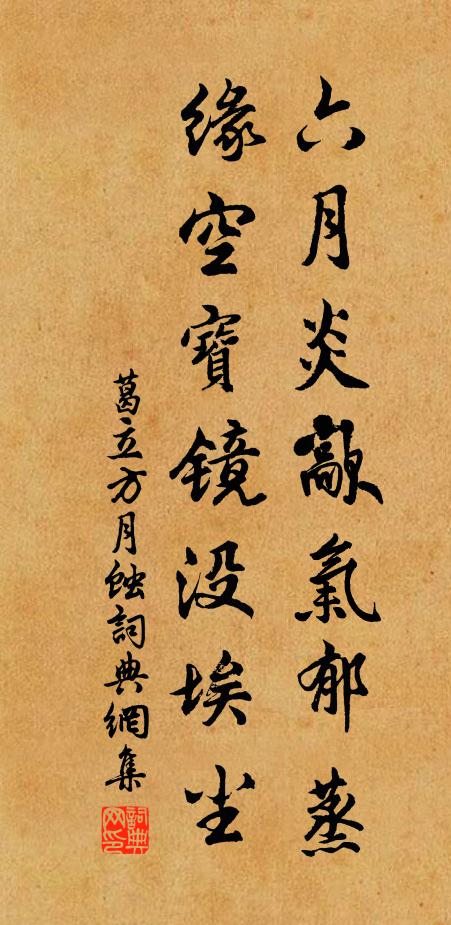 六月炎歊氣郁蒸
缘空寶镜没埃尘
葛立方月蚀詞典網集
詞典网印